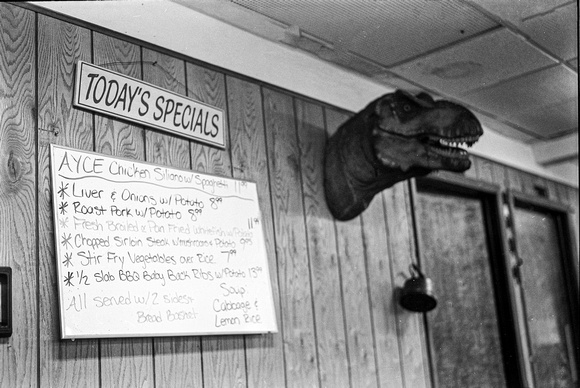 TODAY'S SPECIALS
AYCE Chicken Siliano w/ Spaghetti
* Liver & Onions w/ Potato 8⁹⁹
* Roast Pork w/ Potato 8⁹⁹
* Fresh Broiled or Pan Fried Whitefish w/ Potato 11⁹⁹
* Chopped Sirloin Steak w/ mushrooms & Potato 9⁹⁵
* Stir Fry Vegetables over Rice 7⁹⁹
* ½ Slab BBQ Baby Back Ribs w/ Potato 13⁹⁹
All served w/ 2 sides &
Bread Basket
Soup:
Cabbage &
Lemon Rice